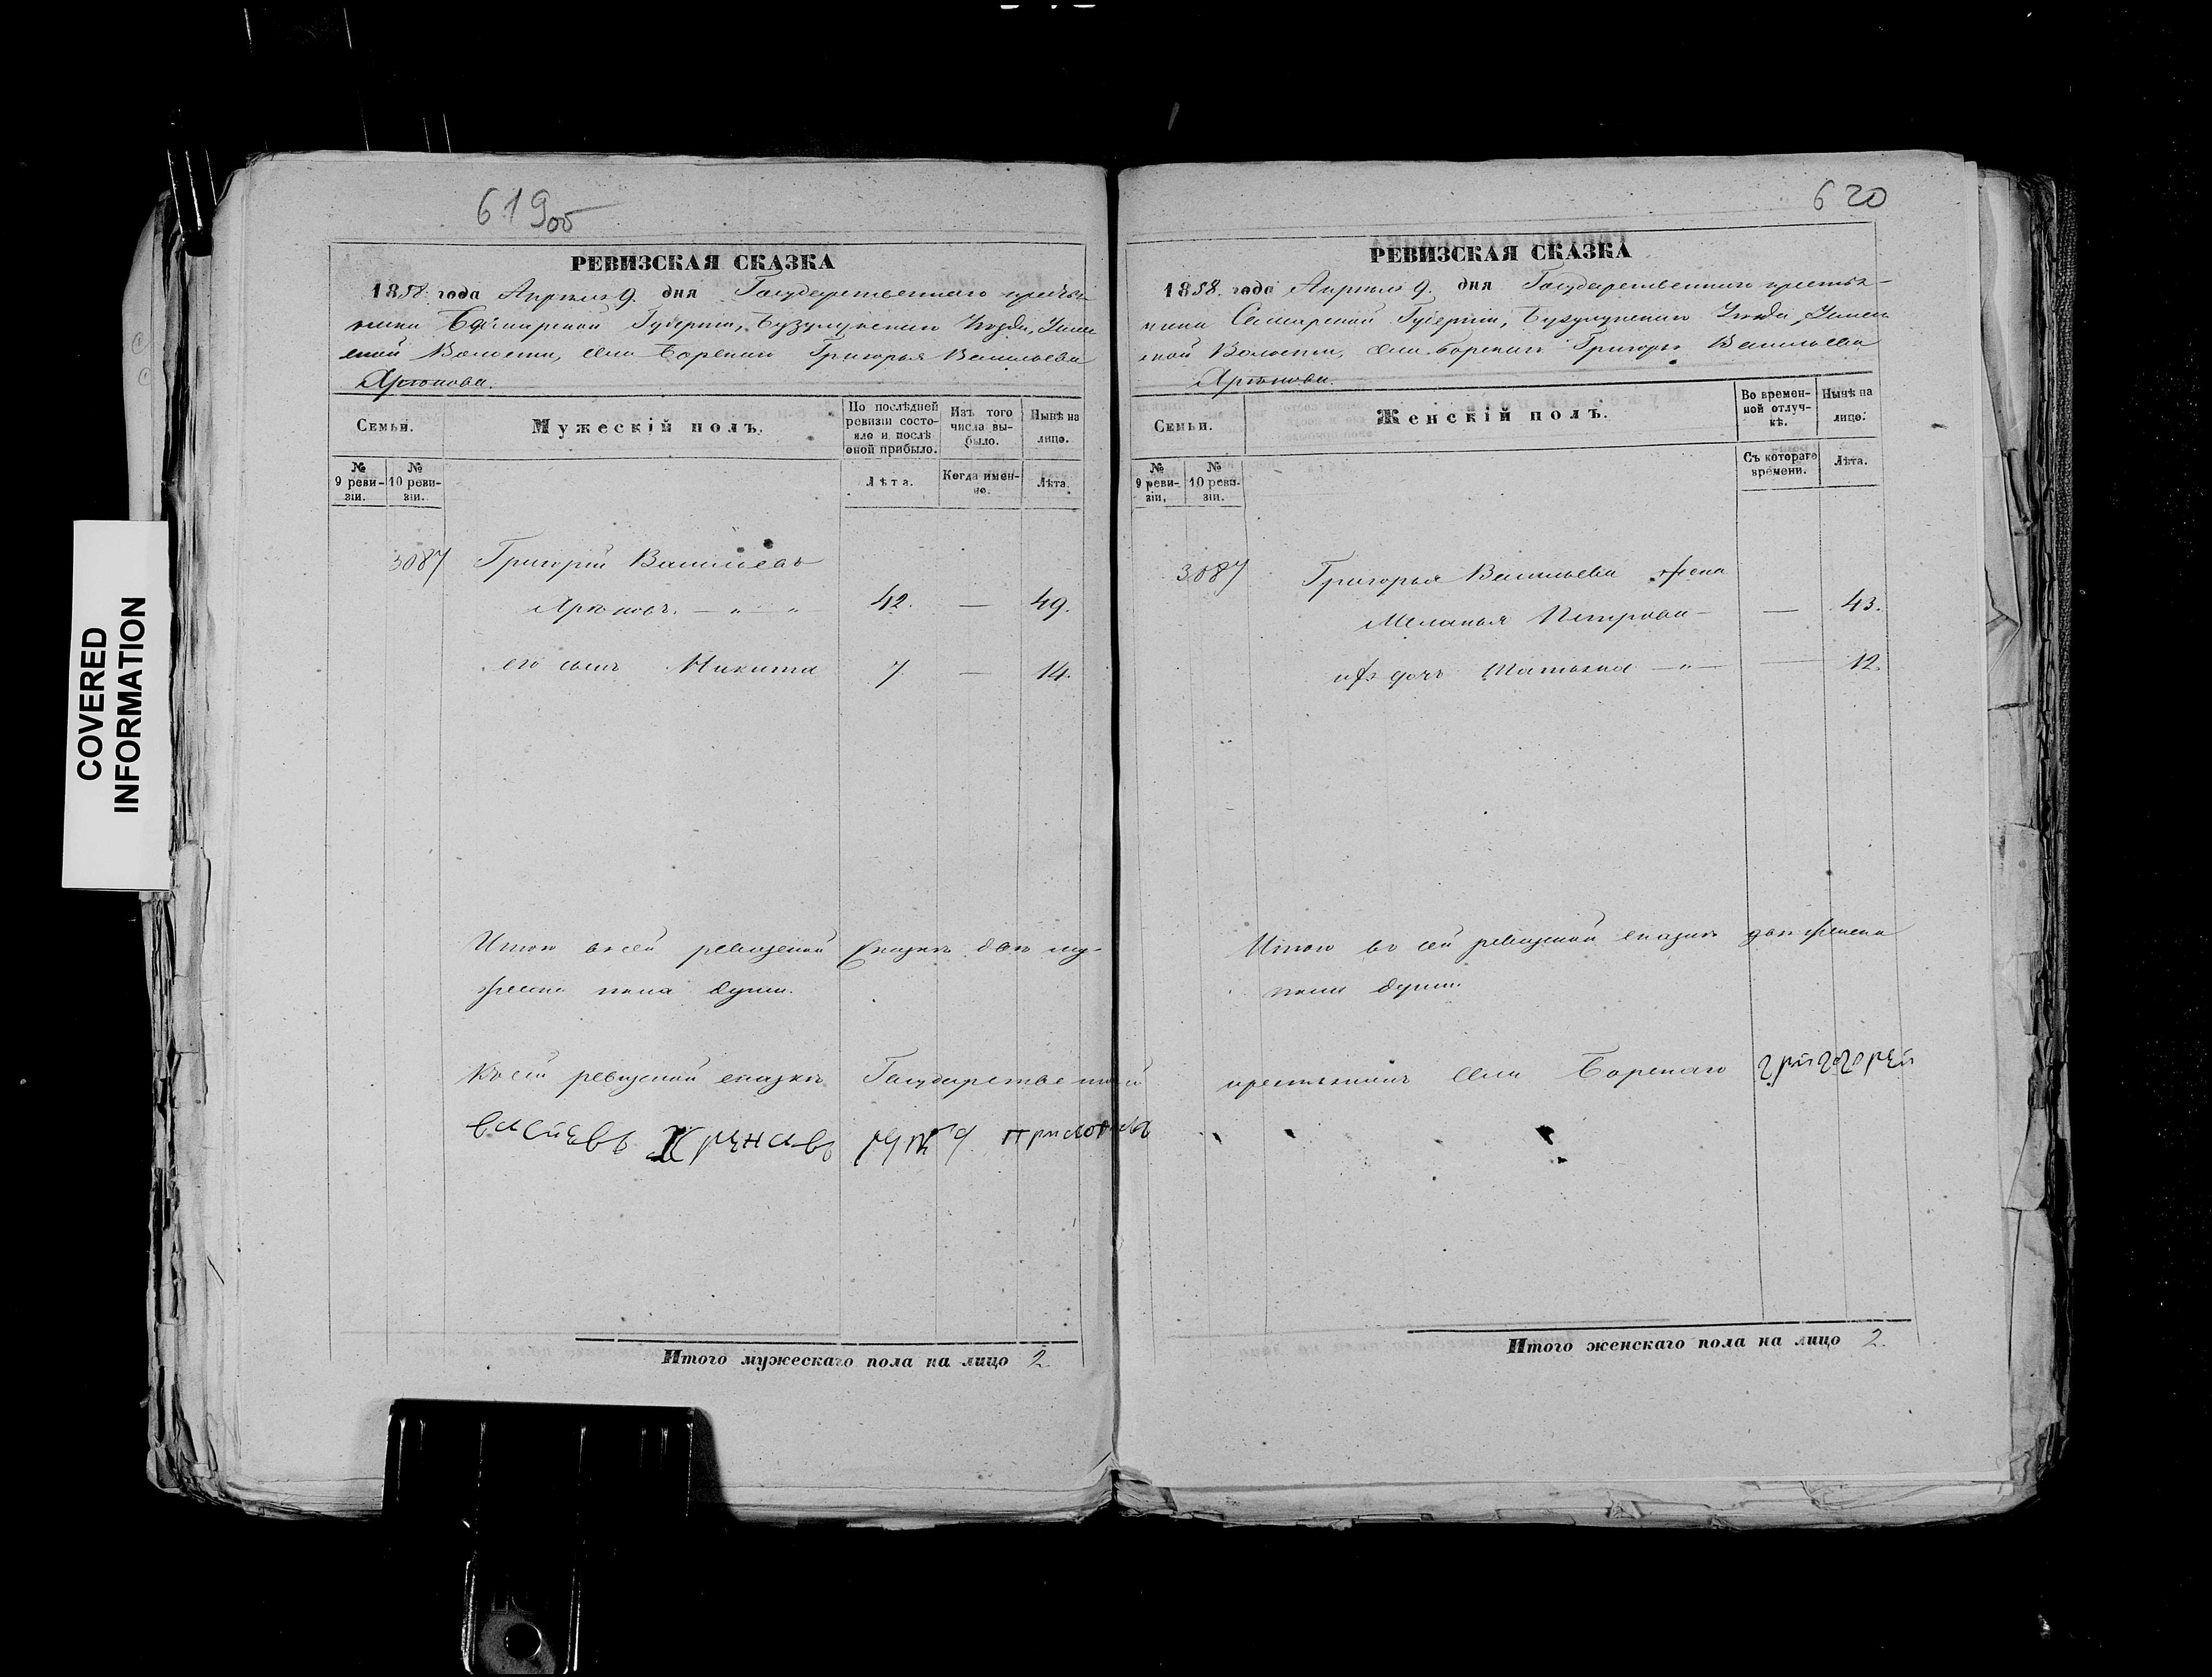 COVERED
INFORMATION
619об
РЕВИЗСКАЯ СКАЗКА
1858. года Апреля 9. дня Государственнаго крестья-
нина Самарской Губерніи, Бузулукскаго Уезда,
Волости, села Борскаго Григорья Васильева
Хрѣнова.
Семьи.
Мужескій полъ.
По послѣдней ревизіи состо-
яло и послѣ оной прибыло.
Изъ того числа вы-
было.
Нынѣ на лицо.
№ 9 реви-
зіи.
№ 10 реви-
зіи.
Лѣта.
Когда имен-
но.
Лѣта.
3087 Григорій Васильевъ
Хрѣновъ. — „ — „ 42. — 49.
его сынъ Никита 7. — 14.
Итого въ сей ревизской сказкѣ двѣ му-
жеска пола души.
Къ сей ревизской сказкѣ Государственной
васиевъ Хренавъ руку приложилъ
Итого мужескаго пола на лицо 2.
620
РЕВИЗСКАЯ СКАЗКА
1858. года Апреля 9. дня Государственнаго крестья-
нина Самарской Губерніи, Бузулукскаго Уезда,
Волости, села Борскаго Григорья Васильева
Хрѣнова.
Семьи.
Женскій полъ.
Во времен-
ной отлуч-
кѣ.
Нынѣ на лицо.
№ 9 реви-
зіи.
№ 10 реви-
зіи.
Съ котораго времени.
Лѣта.
3087 Григорья Васильева жена
Меланья Петрова — — 43.
ихъ дочь Татьяна — „ — — 12.
Итого въ сей ревизской сказкѣ двѣ женска
пола души.
крестьянинъ села Борскаго григорей
Итого женскаго пола на лицо 2.